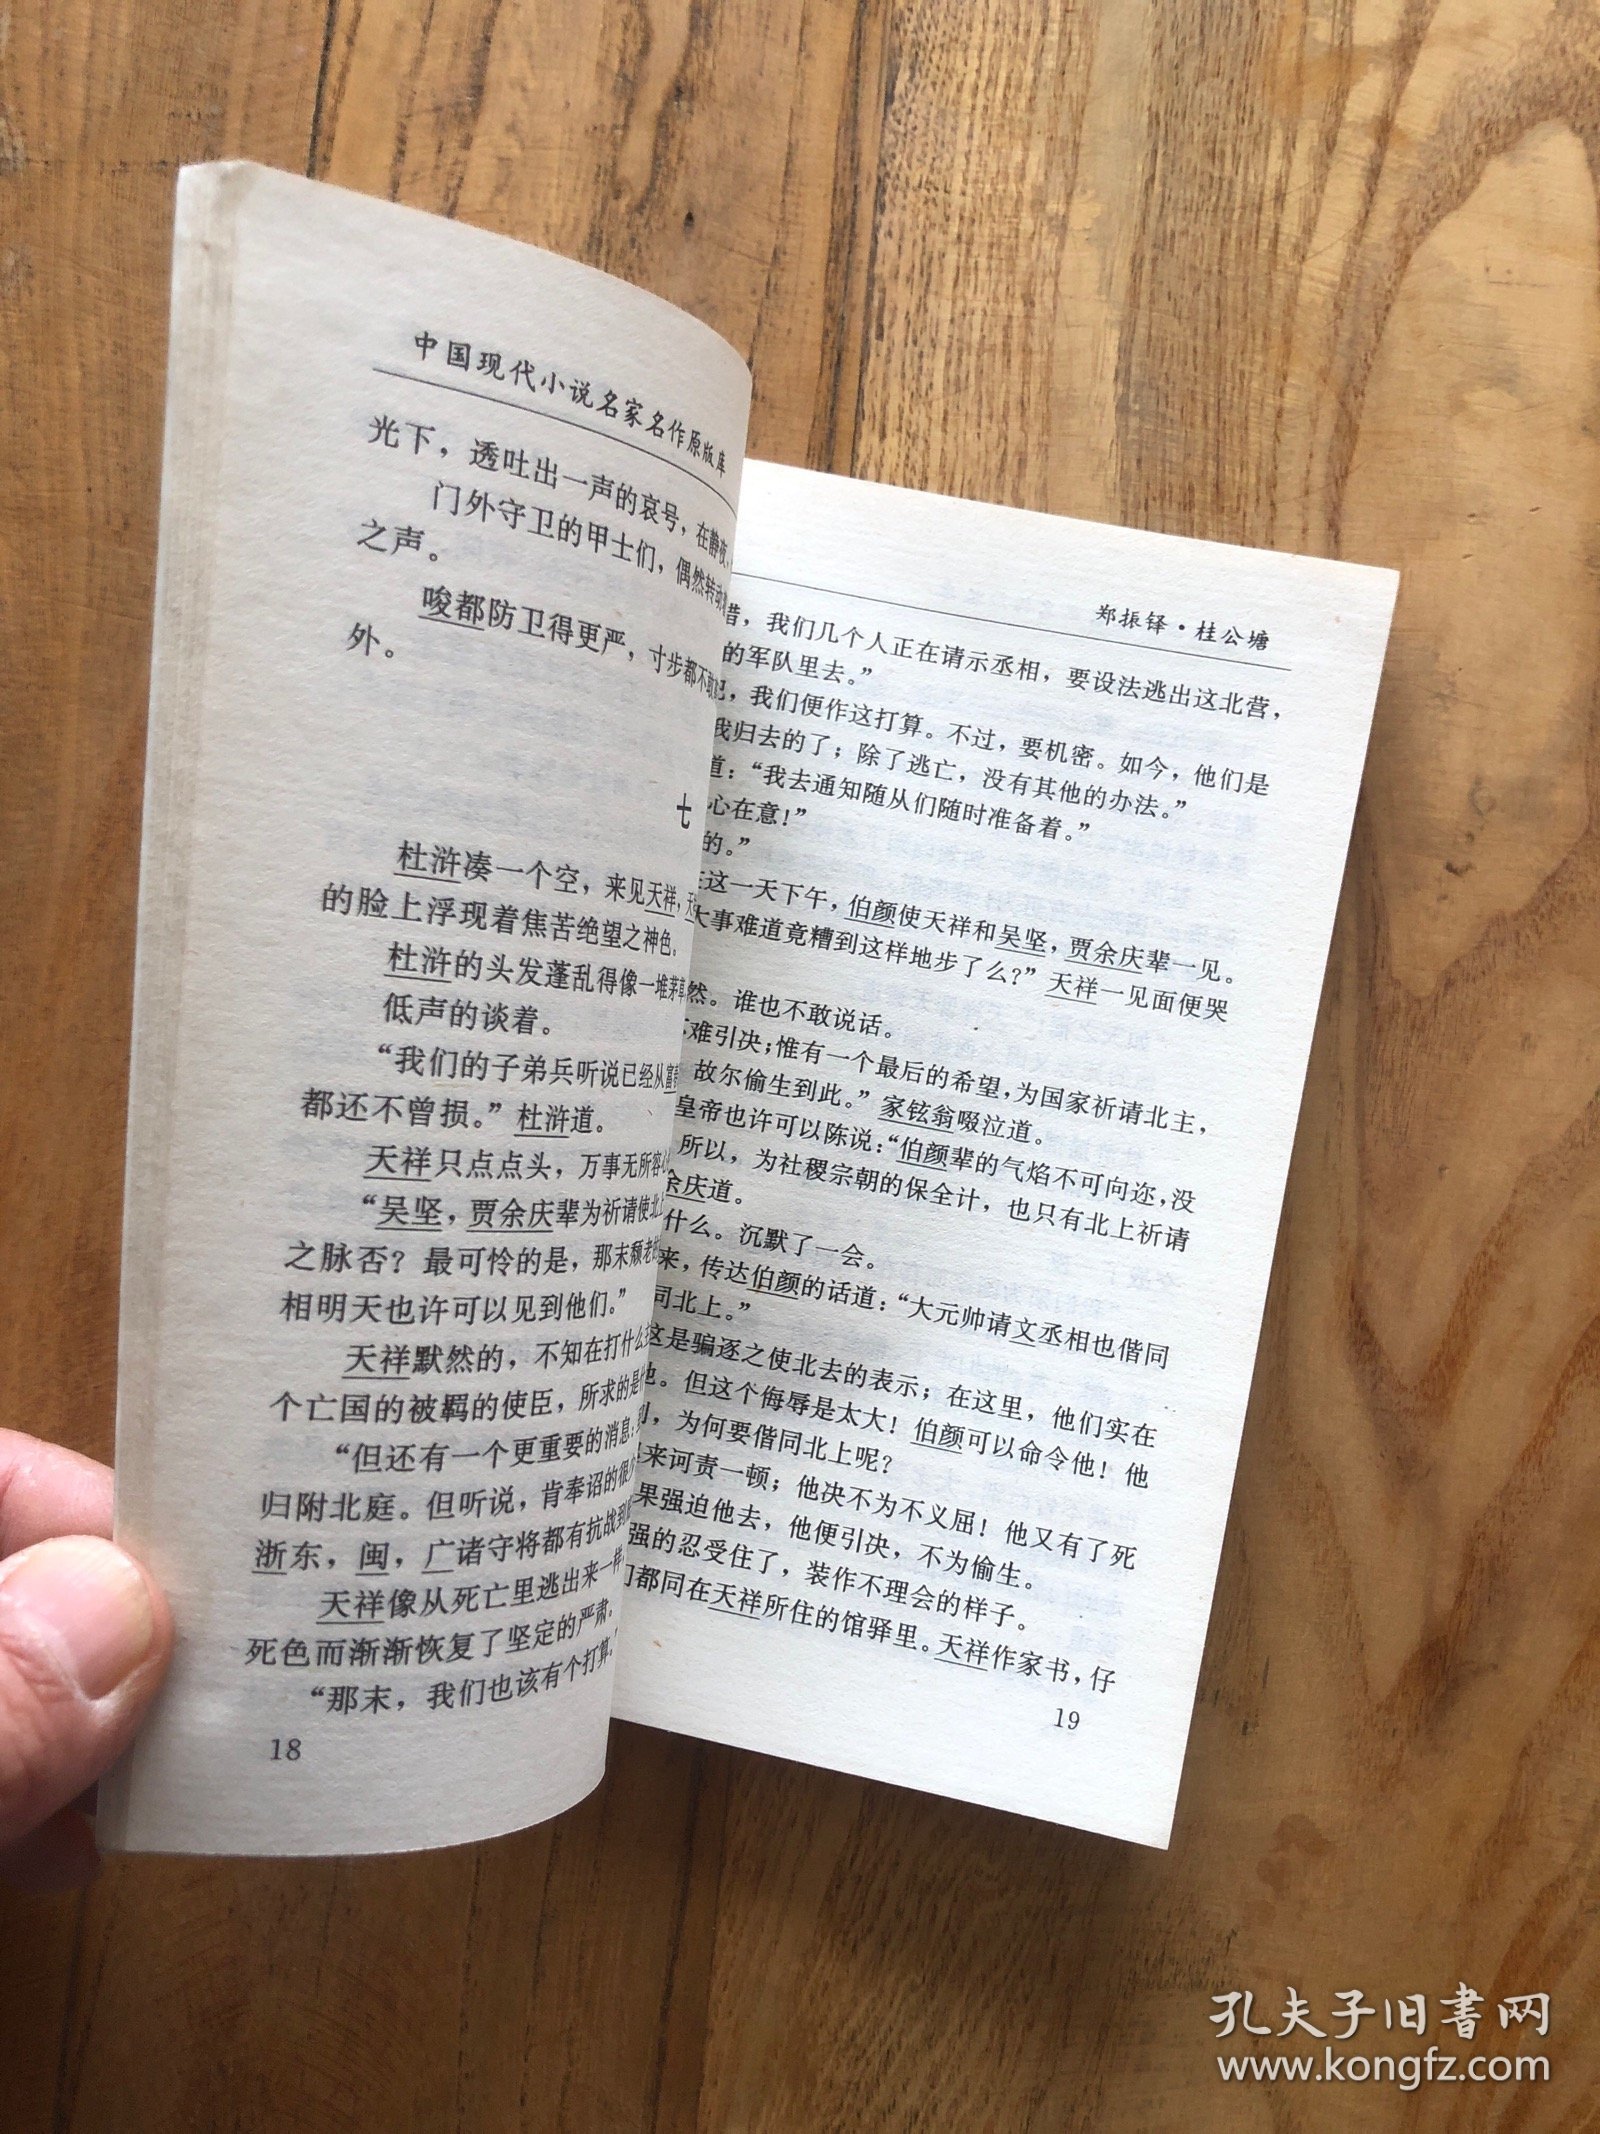 中国现代小说名家名作原版库
光下，透吐出一声的哀号，在静夜，
门外守卫的甲士们，偶然转动
之声。
唆都防卫得更严，寸步都不敢
外。
七
杜浒凑一个空，来见天祥，天
的脸上浮现着焦苦绝望之神色。
杜浒的头发蓬乱得像一堆茅草
低声的谈着。
“我们的子弟兵听说已经从富
都还不曾损。”杜浒道。
天祥只点点头，万事无所容心
“吴坚，贾余庆辈为祈请使北上
之脉否？最可怜的是，那末颓老
相明天也许可以见到他们。”
天祥默然的，不知在打什么主
个亡国的被羁的使臣，所求的是什
“但还有一个更重要的消息：
归附北庭。但听说，肯奉诏的很少
浙东，闽，广诸守将都有抗战到
天祥像从死亡里逃出来一样
死色而渐渐恢复了坚定的严肃。
“那末，我们也该有个打算。
18
郑振铎·桂公塘
惜，我们几个人正在请示丞相，要设法逃出这北营，
的军队里去。”
，我们便作这打算。不过，要机密。如今，他们是
我归去的了；除了逃亡，没有其他的办法。”
道：“我去通知随从们随时准备着。”
心在意！”
的。”
这一天下午，伯颜使天祥和吴坚，贾余庆辈一见。
大事难道竟糟到这样地步了么？”天祥一见面便哭
然。谁也不敢说话。
难引决；惟有一个最后的希望，为国家祈请北主，
故尔偷生到此。”家铉翁啜泣道。
皇帝也许可以陈说：“伯颜辈的气焰不可向迩，没
所以，为社稷宗朝的保全计，也只有北上祈请
余庆道。
什么。沉默了一会。
来，传达伯颜的话道：“大元帅请文丞相也偕同
同北上。”
这是骗逐之使北去的表示；在这里，他们实在
他。但这个侮辱是太大！伯颜可以命令他！他
，为何要偕同北上呢？
来诃责一顿；他决不为不义屈！他又有了死
果强迫他去，他便引决，不为偷生。
强的忍受住了，装作不理会的样子。
们都同在天祥所住的馆驿里。天祥作家书，仔
19
孔夫子旧书网
www.kongfz.com